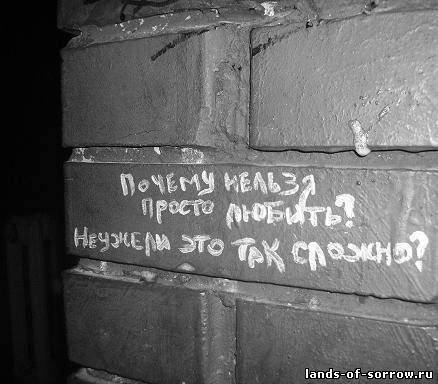 Почему нельзя
просто любить?
Неужели это так сложно?
lands-of-sorrow.ru